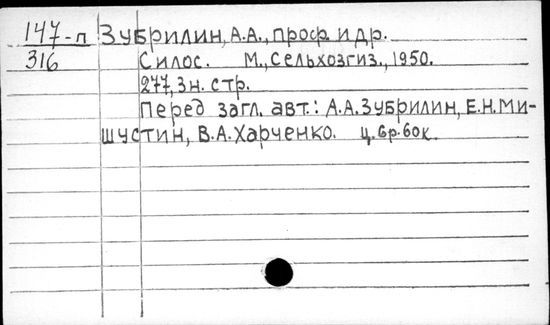 147-п Зубрилин, А.А., проф. и др.
316 Силос. М., Сельхозгиз., 1950.
277, 3н. стр.
Перед загл. авт.: А.А.Зубрилин, Е.Н.Ми-
шустин, В.А.Харченко. ц. 6р. 60к.